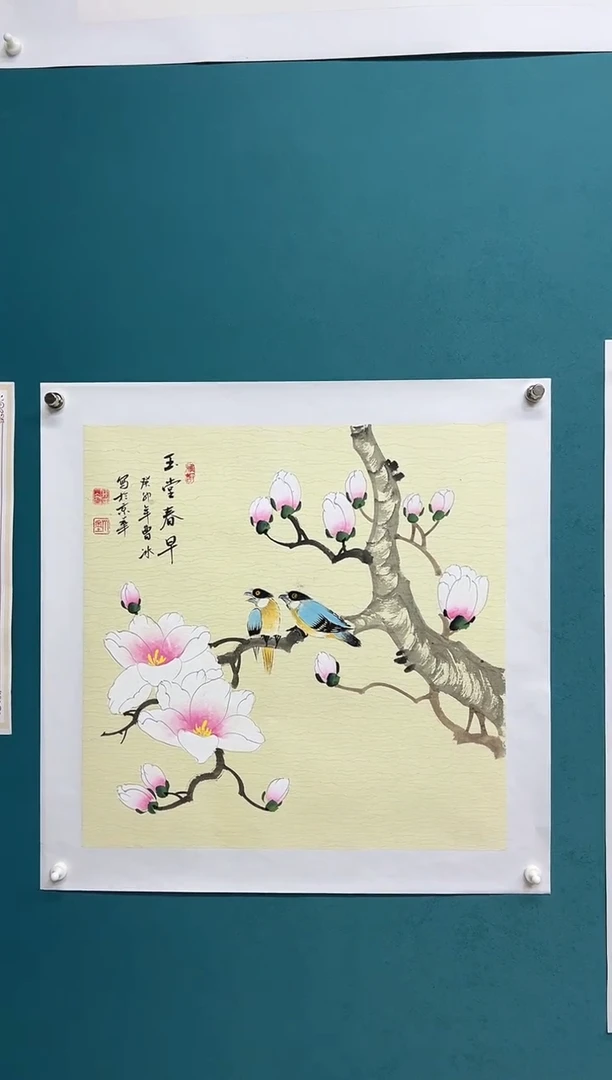 玉堂春早
癸卯年曹冰
写于京華